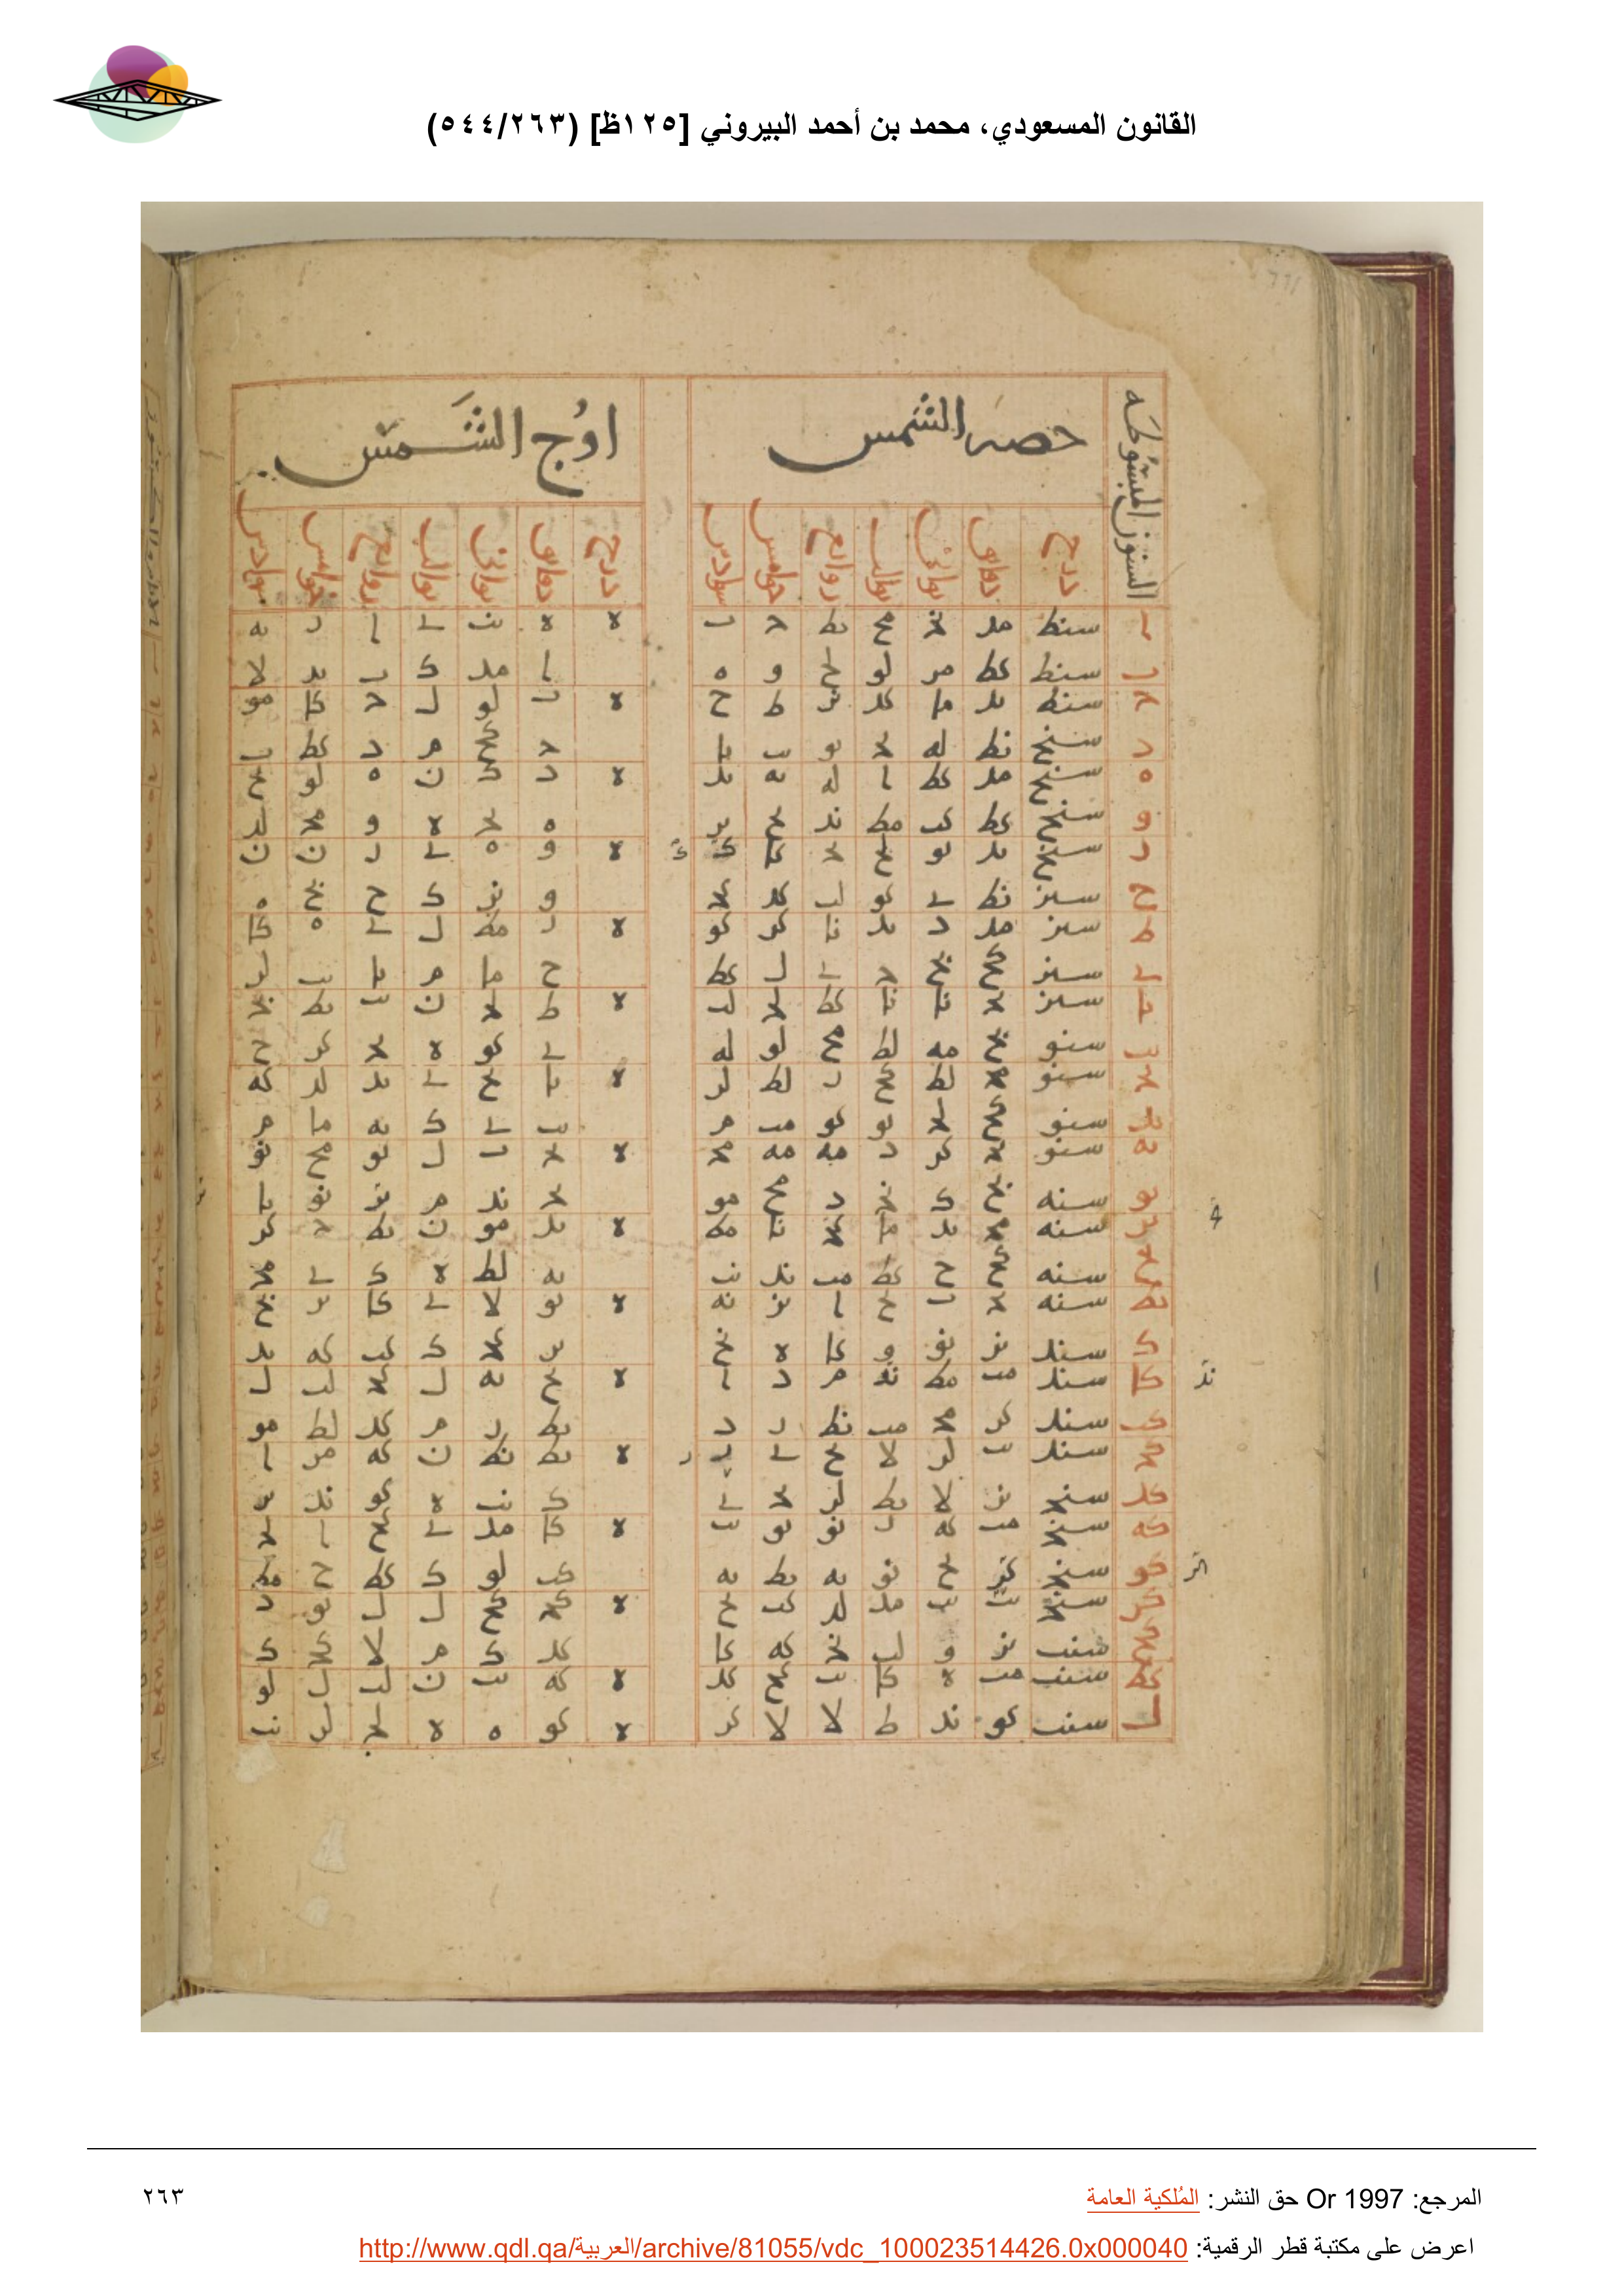 القانون المسعودي، محمد بن أحمد البيروني [١٢٥ظ] (٥٤٤/٢٦٣)
السنون المبسوطه حصه الشمس اوج الشمس
درج دقايق ثواني ثوالث روابع خوامس سوادس درج دقايق ثواني ثوالث روابع خوامس سوادس
ا سنط مد نج مح يط ج ب ه ه نب ي ا ز يه
ب سنط كط مز لو لح و ه ا مد ك ب يد لا
ج سنط يد ما كد نز ط ح ه ب لو ل ج كا مو
د سنح نط له يج يو يب يا ج كح م د كط
ه سنح مد كط ا له يه يد ه د ك ن ه لو يح
و سنح كط كب مط ند يح يز ه يج ه و مج لد
ز سنح يد يو لح يج كا ك ه و ه ي ز ن ن
ح سنز نط ي كو لب كد كج و نز ك ح نح ه
ط سنز مد د يد نا كز كو ه ز مط ل ي ه كا
ي سنز كح نح ج ي ل كط ح ما م يا يب لز
يا سنز يج نا نا كط لج لب ه ط لج ن يب يط نج
يب سنو نح مه لط مح لو له ي كو ه يج كز ح
يج سنو مج لط كح ز لط لز ه يا يح ي يد لد كه
يد سنو كح لج يو كو مب م يب ي ك يه ما م
يه سنو يج كز د مه مه مج ه يج ب ل يو مح نو
يو سنه نح ك نج د مح مو يج ند م يز نو يا
يز سنه مج يد ما كج نا مط ه يد مو ن يط ج كز
يح سنه كح ح كط مب ند نب يه لط ه ك ي مج
يط سنه يج ب يح ا نز نه ه يو لا ي كا يز نح
ك سند نز نو و كا ه نح يز كج ك كب كه يد
كا سند مب مط نه م د ا ه يح يه ل كج لب ل
كب سند كز مج مب نط ز د يط ز م كد لط مو
كج سند يب لز لا يح ي ز ه يط نط ن كه مز ا
كد سنج نز لا يط لز يج ي ك نب ه كو ند يز
كه سنج مب كه ز نو يو يب ه كا مد ي كح ا لج
كو سنج كز يح نو يه يط يه كب لو ك كط ح مط
كز سنج يب يب مد لد كب يح ه كج كح ل ل يو د
كح سنب نز و لب نج كه كا كد ك م لا كج ك
كط سنب مب ه كا يب كح كد ه كه يب ن لب ل لو
ل سنب كو ند ط لا لا كز ه كو ه ه لج لز نب
المرجع: Or 1997 حق النشر: المُلكية العامة
٢٦٣
اعرض على مكتبة قطر الرقمية: http://www.qdl.qa/العربية/archive/81055/vdc_100023514426.0x000040